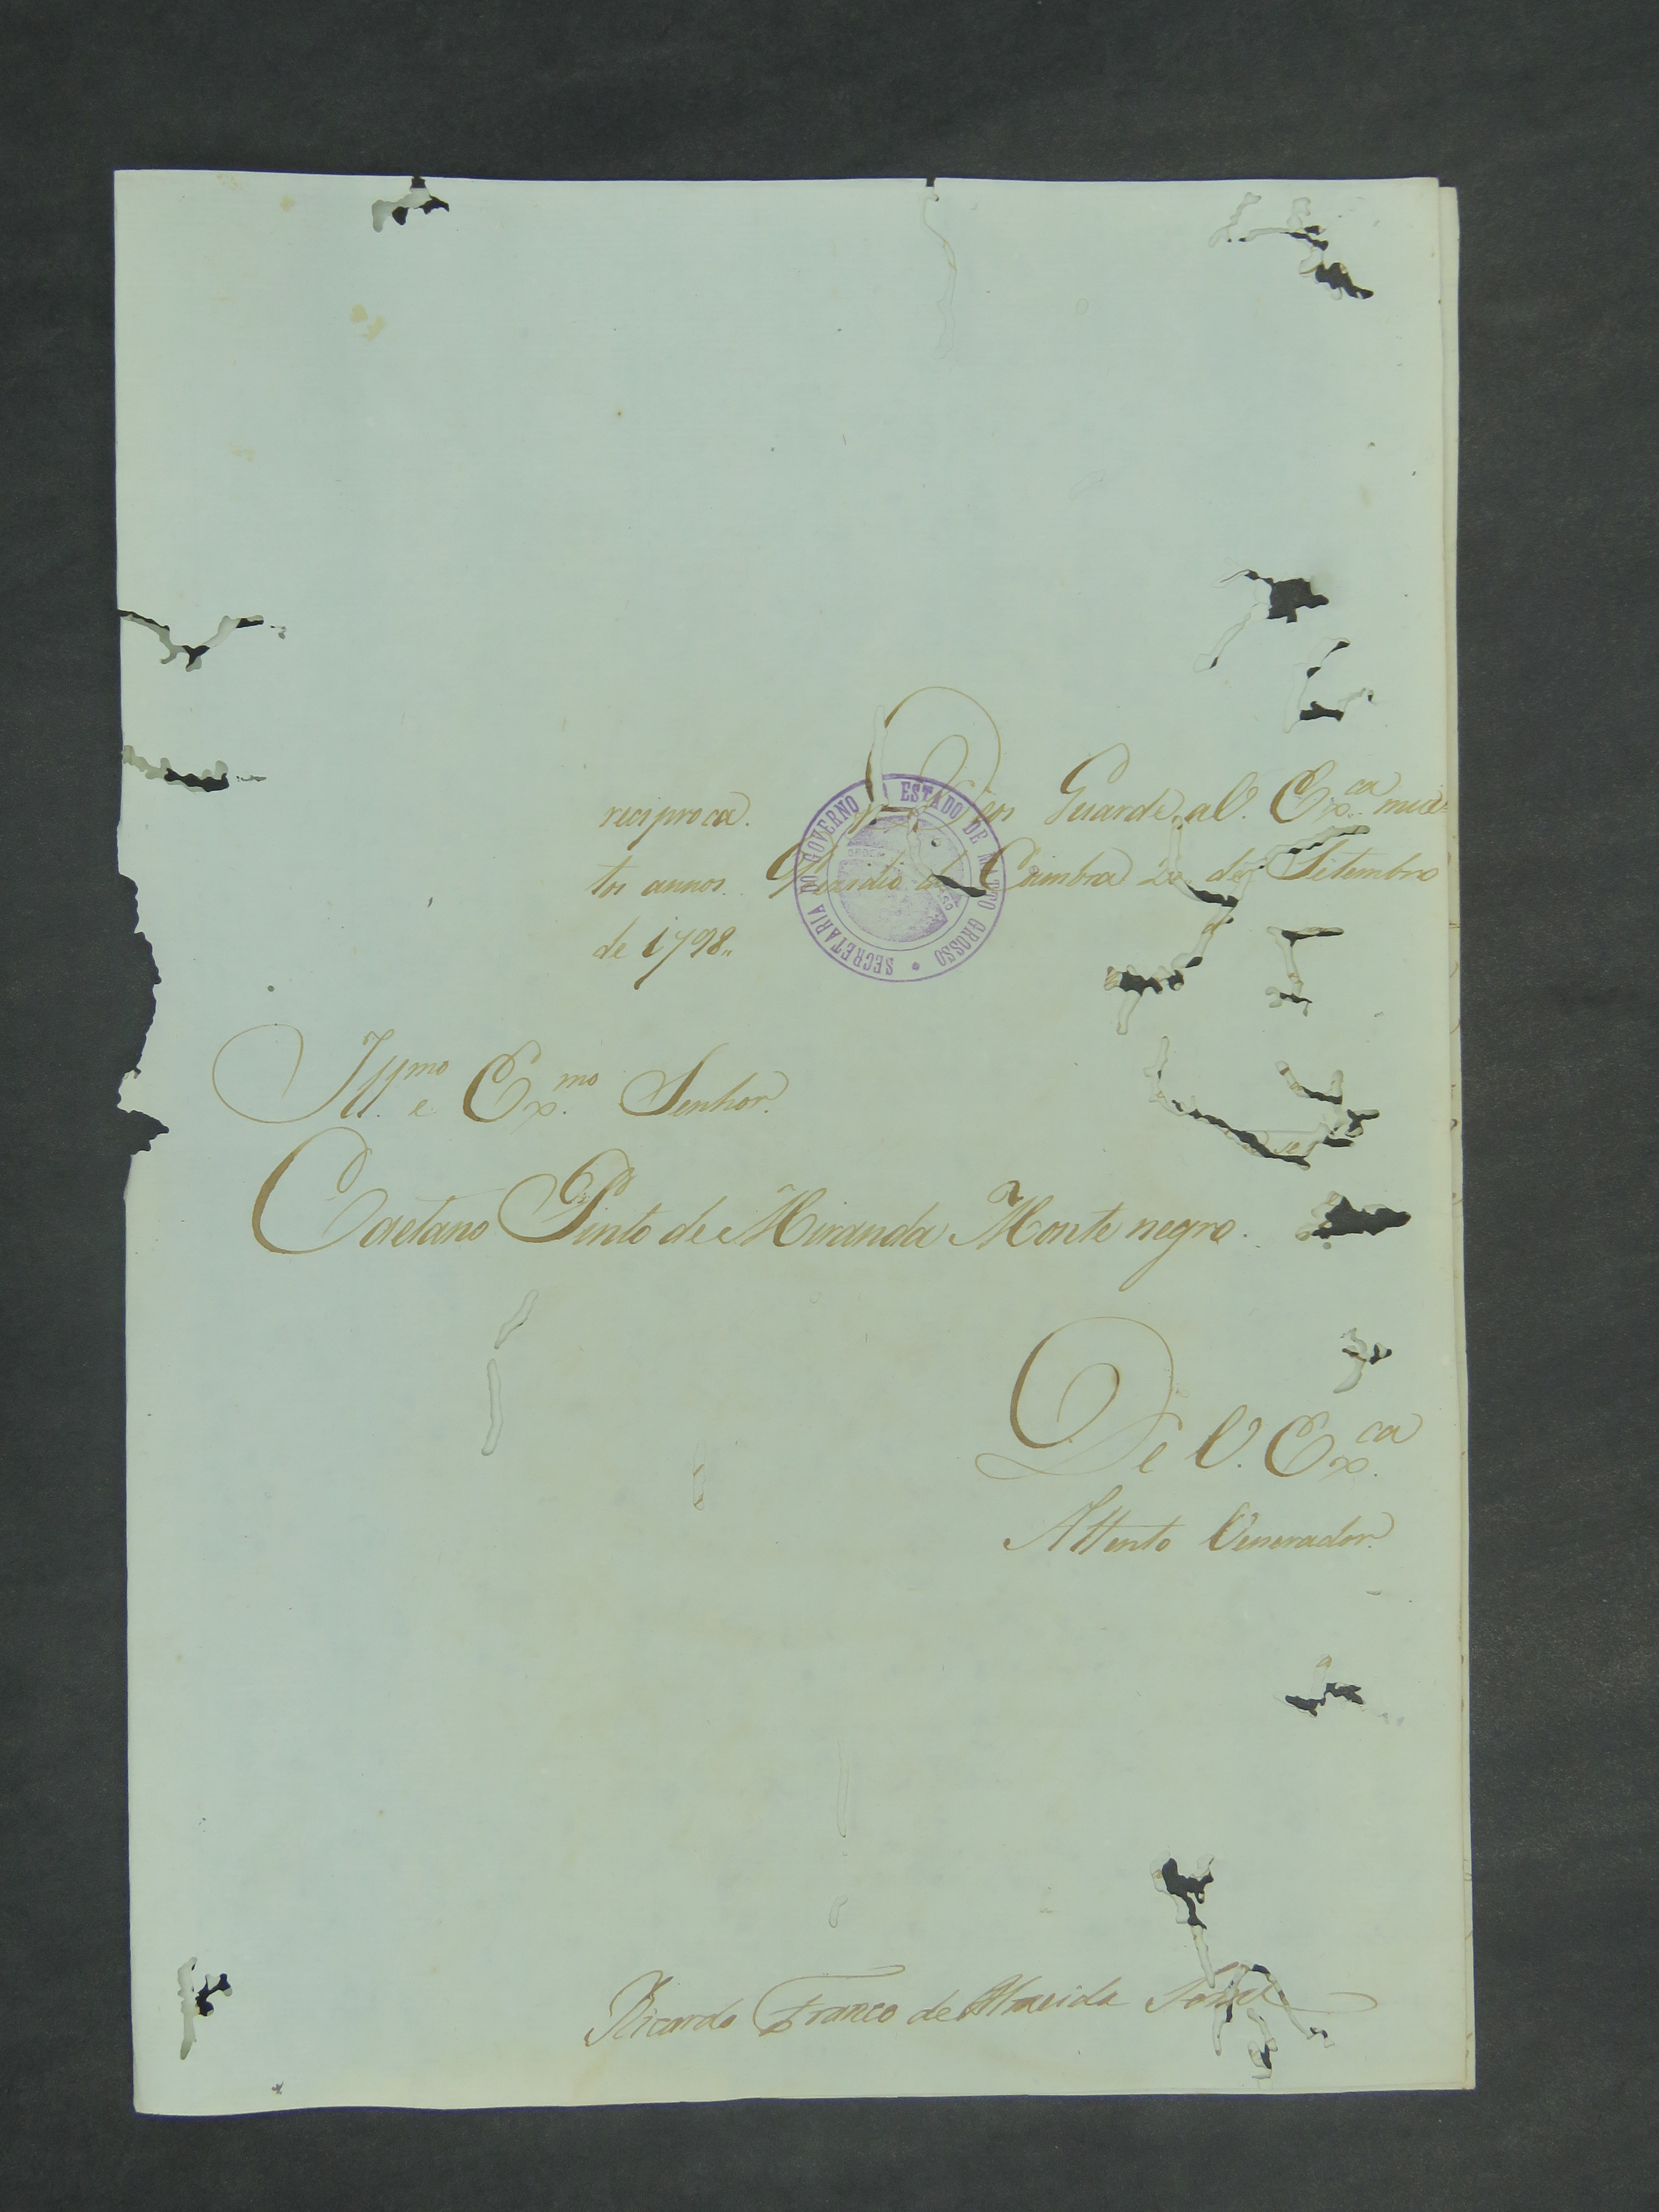 reciproca. Deos Guarde a V. Ex.ca mui=
tos annos. Prezidio de Coimbra 2 de Setembro
de 1798..
SECRETARIA DO GOVERNO ESTADO DE MATTO GROSSO
Ill.mo e Ex.mo Senhor.
Caetano Pinto de Miranda Monte negro.
De V. Ex.ca
Attento Venerador.
Ricardo Franco de Almeida Serra